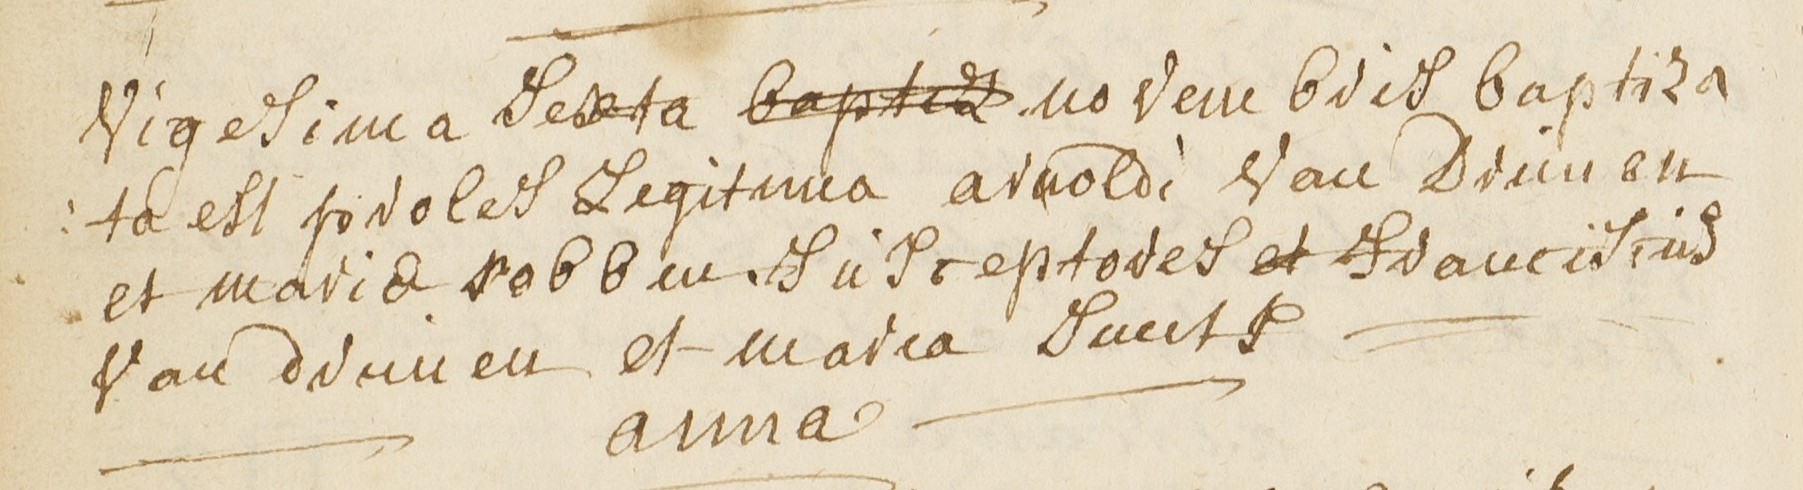 Vigesima Sexta baptiz novembris baptiza
ta est proles Legitima arnoldi Van Drunen
et maria robben. Susceptores et Franciscus
Van drunen et maria Smets
anna